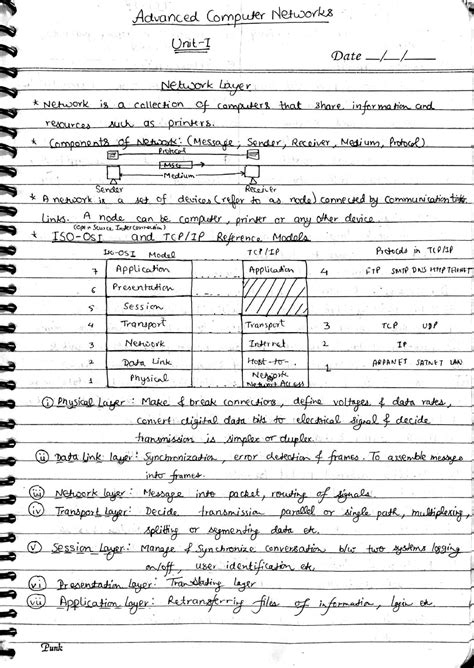 Advanced Computer Networks
Unit-I
Date __/__/__
Network Layer
* Network is a collection of computers that share information and
resources such as printers.
* Components of Network: (Message, Sender, Receiver, Medium, Protocol)
Protocol
Msg
Medium
Sender Receiver
* A network is a set of devices (refer to as node) connected by Communication
links. A node can be computer, printer or any other device.
(Open Source Interconnection)
* ISO-OSI and TCP/IP Reference Models
ISO-OSI Model TCP/IP Protocols in TCP/IP
7 Application Application 4 FTP SMTP DNS HTTP TELNET
6 Presentation
5 Session
4 Transport Transport 3 TCP UDP
3 Network Internet 2 IP
2 Data Link Host-to- 1 ARPANET SATNET LAN
1 Physical Network
Network Access
(i) Physical Layer: Make & break connections, define voltages & data rates,
convert digital data bits to electrical signal & decide
transmission is simplex or duplex.
(ii) Data link layer: Synchronization, error detection & frames. To assemble message
into frames.
(iii) Network layer: Message into packet, routing of signals.
(iv) Transport layer: Decide transmission parallel or single path, multiplexing,
spliting or segmenting data etc.
(v) Session Layer: Manage & Synchronize conversation b/w two systems logging
on/off, user identification etc.
(vi) Presentation layer: Translating layer
(vii) Application layer: Retransferring files of information, login etc.
Punk